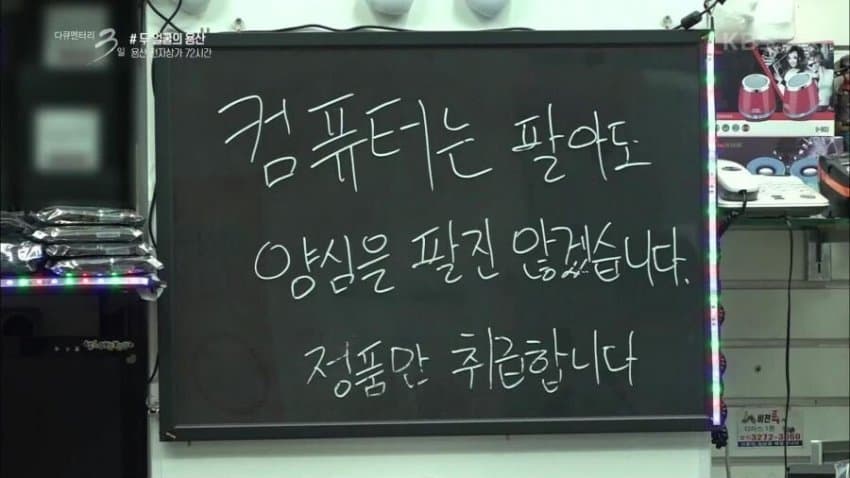 다큐멘터리 3일
# 두 얼굴의 용산
용산 전자상가 72시간
KBS
컴퓨터는 팔아도
양심을 팔진 않겠습니다.
정품만 취급합니다
비전폭
3272-3060